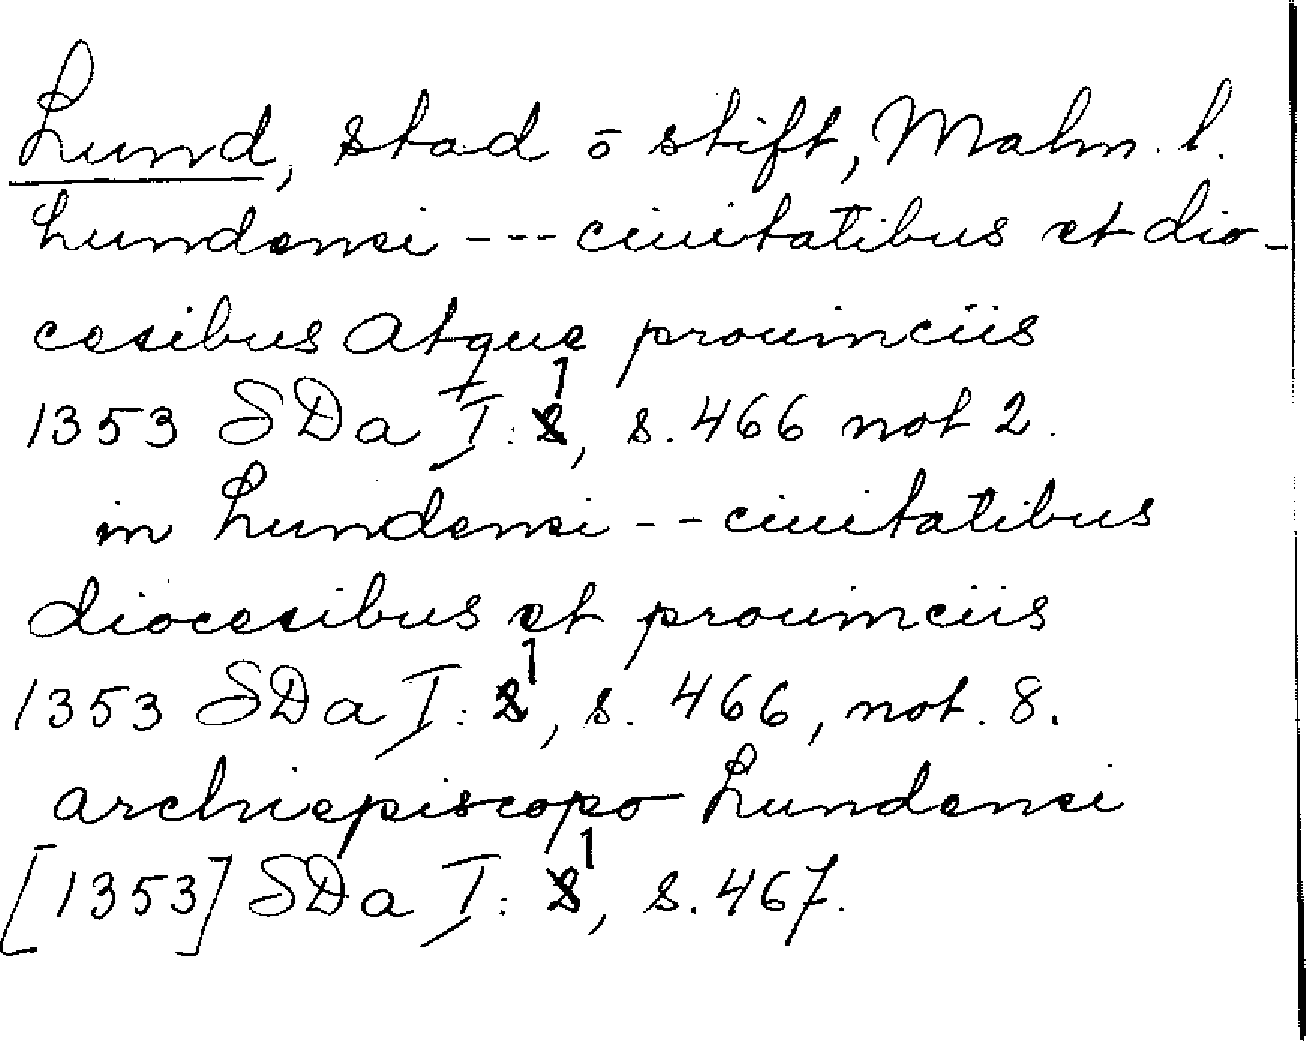 Lund, stad o stift, Malm. l.
Lundensi --- ciuitatibus et dio-
cesibus atque prouinciis
1353 SDa I: 1, s. 466 not 2.
in Lundensi -- ciuitatibus
diocesibus et prouinciis
1353 SDa I: 1, s. 466, not. 8.
archiepiscopo Lundensi
[1353] SDa I: 1, s. 467.